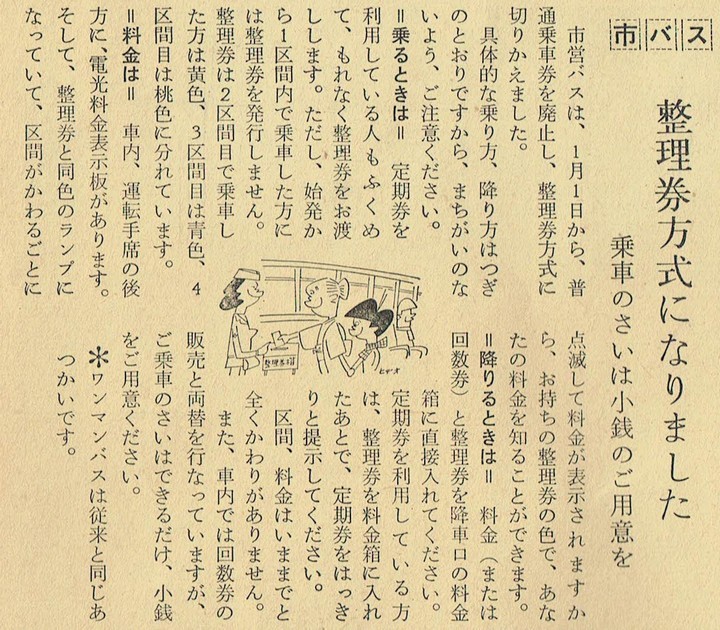 市バス
整理券方式になりました
乗車のさいは小銭のご用意を
市営バスは、1月1日から、普
通乗車券を廃止し、整理券方式に
切りかえました。
具体的な乗り方、降り方はつぎ
のとおりですから、まちがいのな
いよう、ご注意ください。
＝乗るときは＝　定期券を
利用している人もふくめ
て、もれなく整理券をお渡
しします。ただし、始発か
ら1区間内で乗車した方に
は整理券を発行しません。
整理券は2区間目で乗車し
た方は黄色、3区間目は青色、4
区間目は桃色に分れています。
＝料金は＝　車内、運転手席の後
方に、電光料金表示板があります。
そして、整理券と同色のランプに
なっていて、区間がかわるごとに
点滅して料金が表示されますか
ら、お持ちの整理券の色で、あな
たの料金を知ることができます。
＝降りるときは＝　料金（または
回数券）と整理券を降車口の料金
箱に直接入れてください。
定期券を利用している方
は、整理券を料金箱に入れ
たあとで、定期券をはっき
りと提示してください。
区間、料金はいままでと
全くかわりがありません。
また、車内では回数券の
販売と両替を行なっていますが、
ご乗車のさいはできるだけ、小銭
をご用意ください。
＊ワンマンバスは従来と同じあ
つかいです。
整理券箱